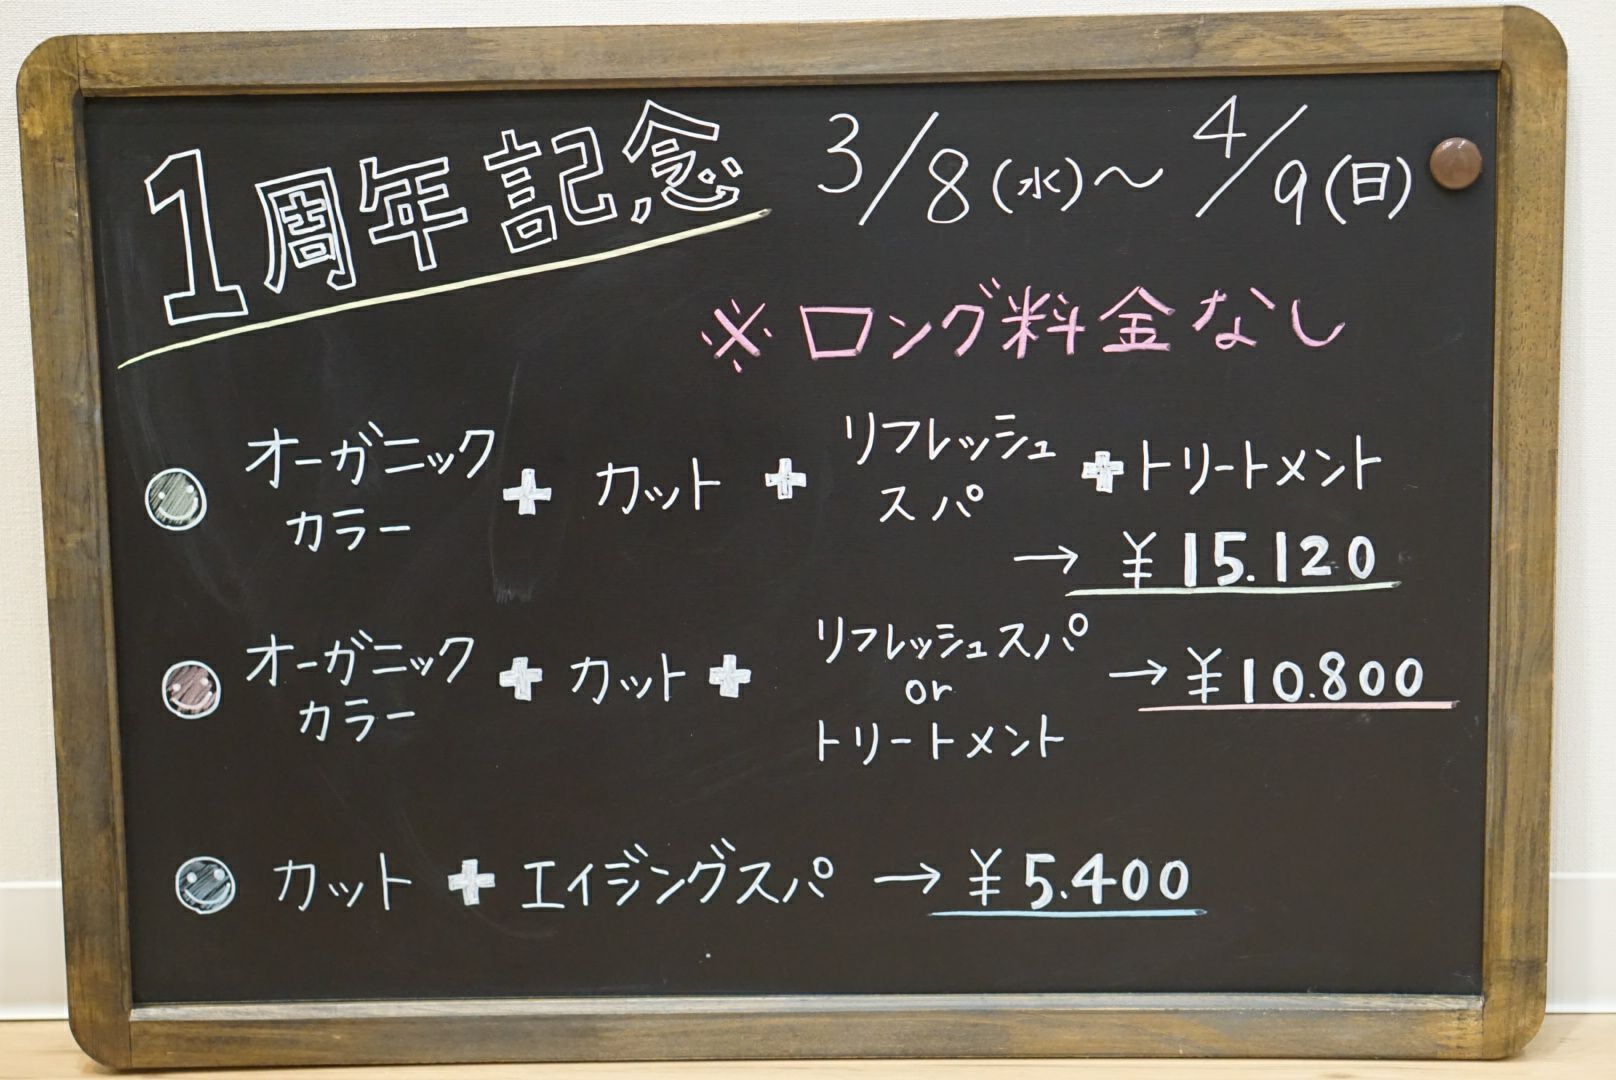 1周年記念 3/8(水)〜4/9(日)
※ロング料金なし
オーガニックカラー + カット + リフレッシュスパ + トリートメント
→ ¥15.120
オーガニックカラー + カット + リフレッシュスパ or トリートメント → ¥10.800
カット + エイジングスパ → ¥5.400